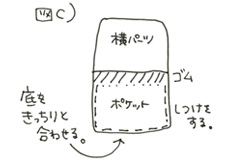 図C)
横パーツ
ゴム
ポケット
底を
きっちりと
合わせる。
しつけを
する。